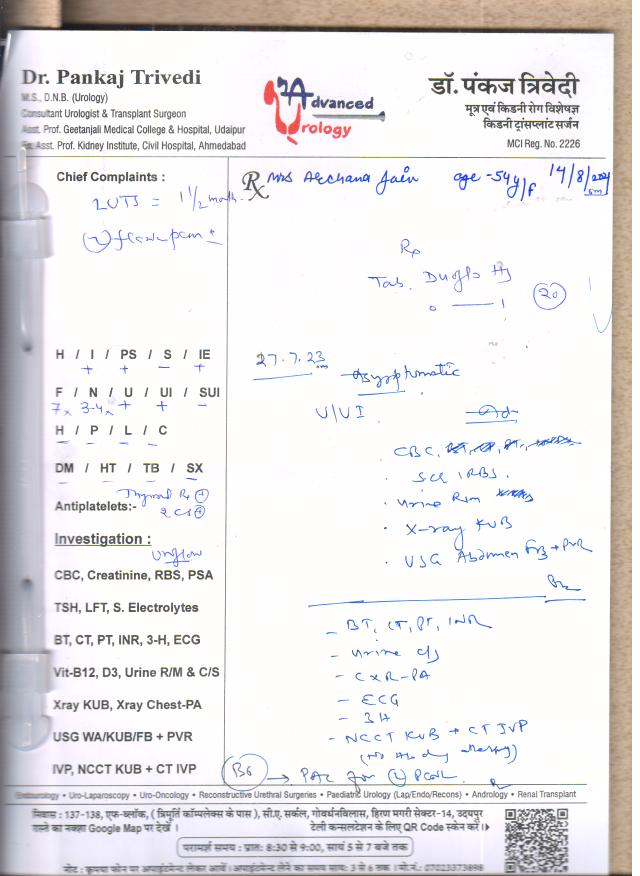 Dr. Pankaj Trivedi
M.S., D.N.B. (Urology)
Consultant Urologist & Transplant Surgeon
Asst. Prof. Geetanjali Medical College & Hospital, Udaipur
Ex. Asst. Prof. Kidney Institute, Civil Hospital, Ahmedabad
Advanced
Urology
डॉ. पंकज त्रिवेदी
मूत्र एवं किडनी रोग विशेषज्ञ
किडनी ट्रांसप्लांट सर्जन
MCI Reg. No. 2226
Chief Complaints :
LUTS = 1 1/2 month
Mrs Archana Jain age - 54y/f 14/8/
Rx
Tab.
0 — 1 20
H / I / PS / S / IE
+ + - +
F / N / U / UI / SUI
7x 3-4x + + -
H / P / L / C
- - - -
DM / HT / TB / SX
Antiplatelets:-
27.7.23
Asymptomatic
U/UI
Adv
CBC,
S Cr, RBS.
Urine R/M
X-ray KUB
USG Abdomen FB + PVR
Investigation :
Uroflow
CBC, Creatinine, RBS, PSA
TSH, LFT, S. Electrolytes
BT, CT, PT, INR, 3-H, ECG
Vit-B12, D3, Urine R/M & C/S
Xray KUB, Xray Chest-PA
USG WA/KUB/FB + PVR
IVP, NCCT KUB + CT IVP
- BT, CT, PT, INR
- Urine c/s
- CXR-PA
- ECG
- 3H
- NCCT KUB + CT IVP
→ PAC for (L) PCNL
Endourology • Uro-Laparoscopy • Uro-Oncology • Reconstructive Urethral Surgeries • Paediatric Urology (Lap/Endo/Recons) • Andrology • Renal Transplant
निवास : 137-138, एफ-ब्लॉक, ( त्रिमूर्ति कॉम्पलेक्स के पास ), सी.ए. सर्कल, गोवर्धनविलास, हिरण मगरी सेक्टर-14, उदयपुर
रास्ते का नक्शा Google Map पर देखें । टेली कन्सलटेशन के लिए QR Code स्केन करें ।
परामर्श समय : प्रातः 8:30 से 9:00, सायं 5 से 7 बजे तक
नोट : कृपया फोन पर अपाइंटमेन्ट लेकर आवें । अपाइंटमेन्ट लेने का समय सायं: 3 से 6 तक । मो.नं.: 07023373898